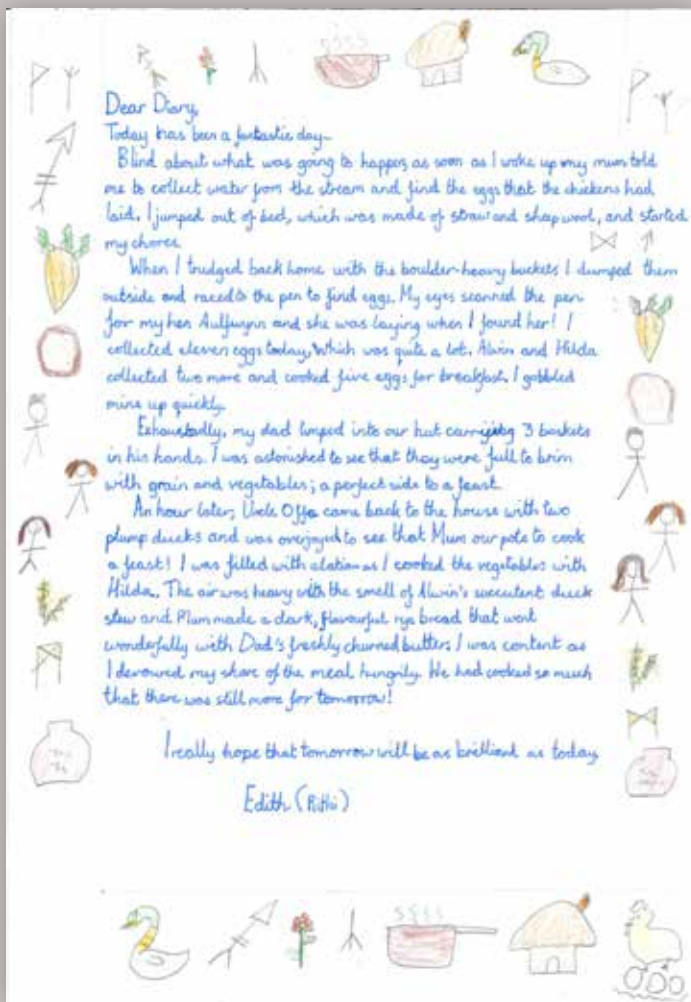 Dear Diary,
Today has been a fantastic day-
Blind about what was going to happen, as soon as I woke up my mum told
me to collect water from the stream and find the eggs that the chickens had
laid. I jumped out of bed, which was made of straw and sheep wool, and started
my chores
When I trudged back home with the boulder-heavy buckets I dumped them
outside and raced to the pen to find eggs. My eyes scanned the pen
for my hen Aulfwynn and she was laying when I found her! I
collected eleven eggs today, which was quite a lot. Alwin and Hilda
collected two more and cooked five eggs for breakfast. I gobbled
mine up quickly.
Exhaustedly, my dad limped into our hut carrying 3 baskets
in his hands. I was astonished to see that they were full to brim
with grain and vegetables; a perfect side to a feast.
An hour later, Uncle Offa came back to the house with two
plump ducks and was overjoyed to see that Mum our pots to cook
a feast! I was filled with elation as I cooked the vegetables with
Hilda. The air was heavy with the smell of Alwin's succulent duck
stew and Mum made a dark, flavourful rye bread that went
wonderfully with Dad's freshly churned butter. I was content as
I devoured my share of the meal hungrily. He had cooked so much
that there was still more for tomorrow!
I really hope that tomorrow will be as brilliant as today.
Edith